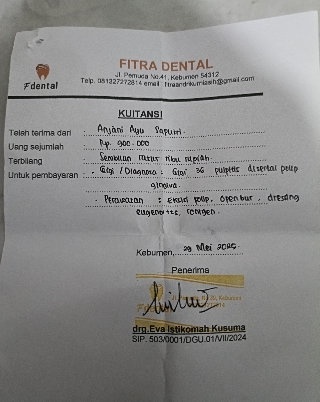 FITRA DENTAL
Jl. Pemuda No.41, Kebumen 54312
Telp. 081327272814 email : fitraandrikurniasih@gmail.com
Fdental
KUITANSI
Telah terima dari : Anjani Ayu Saputri.
Uang sejumlah : Rp. 900.000
Terbilang : Sembilan ratus ribu rupiah.
Untuk pembayaran : - Gigi / Diagnosa : Gigi 36 pulpitis disertai polip
gingiva.
- Perawatan : Eksisi polip, open bur, dressing
eugenol, rontgen.
Kebumen, 29 Mei
Penerima
drg.Eva Istikomah Kusuma
SIP. 503/0001/DGU.01/VII/2024